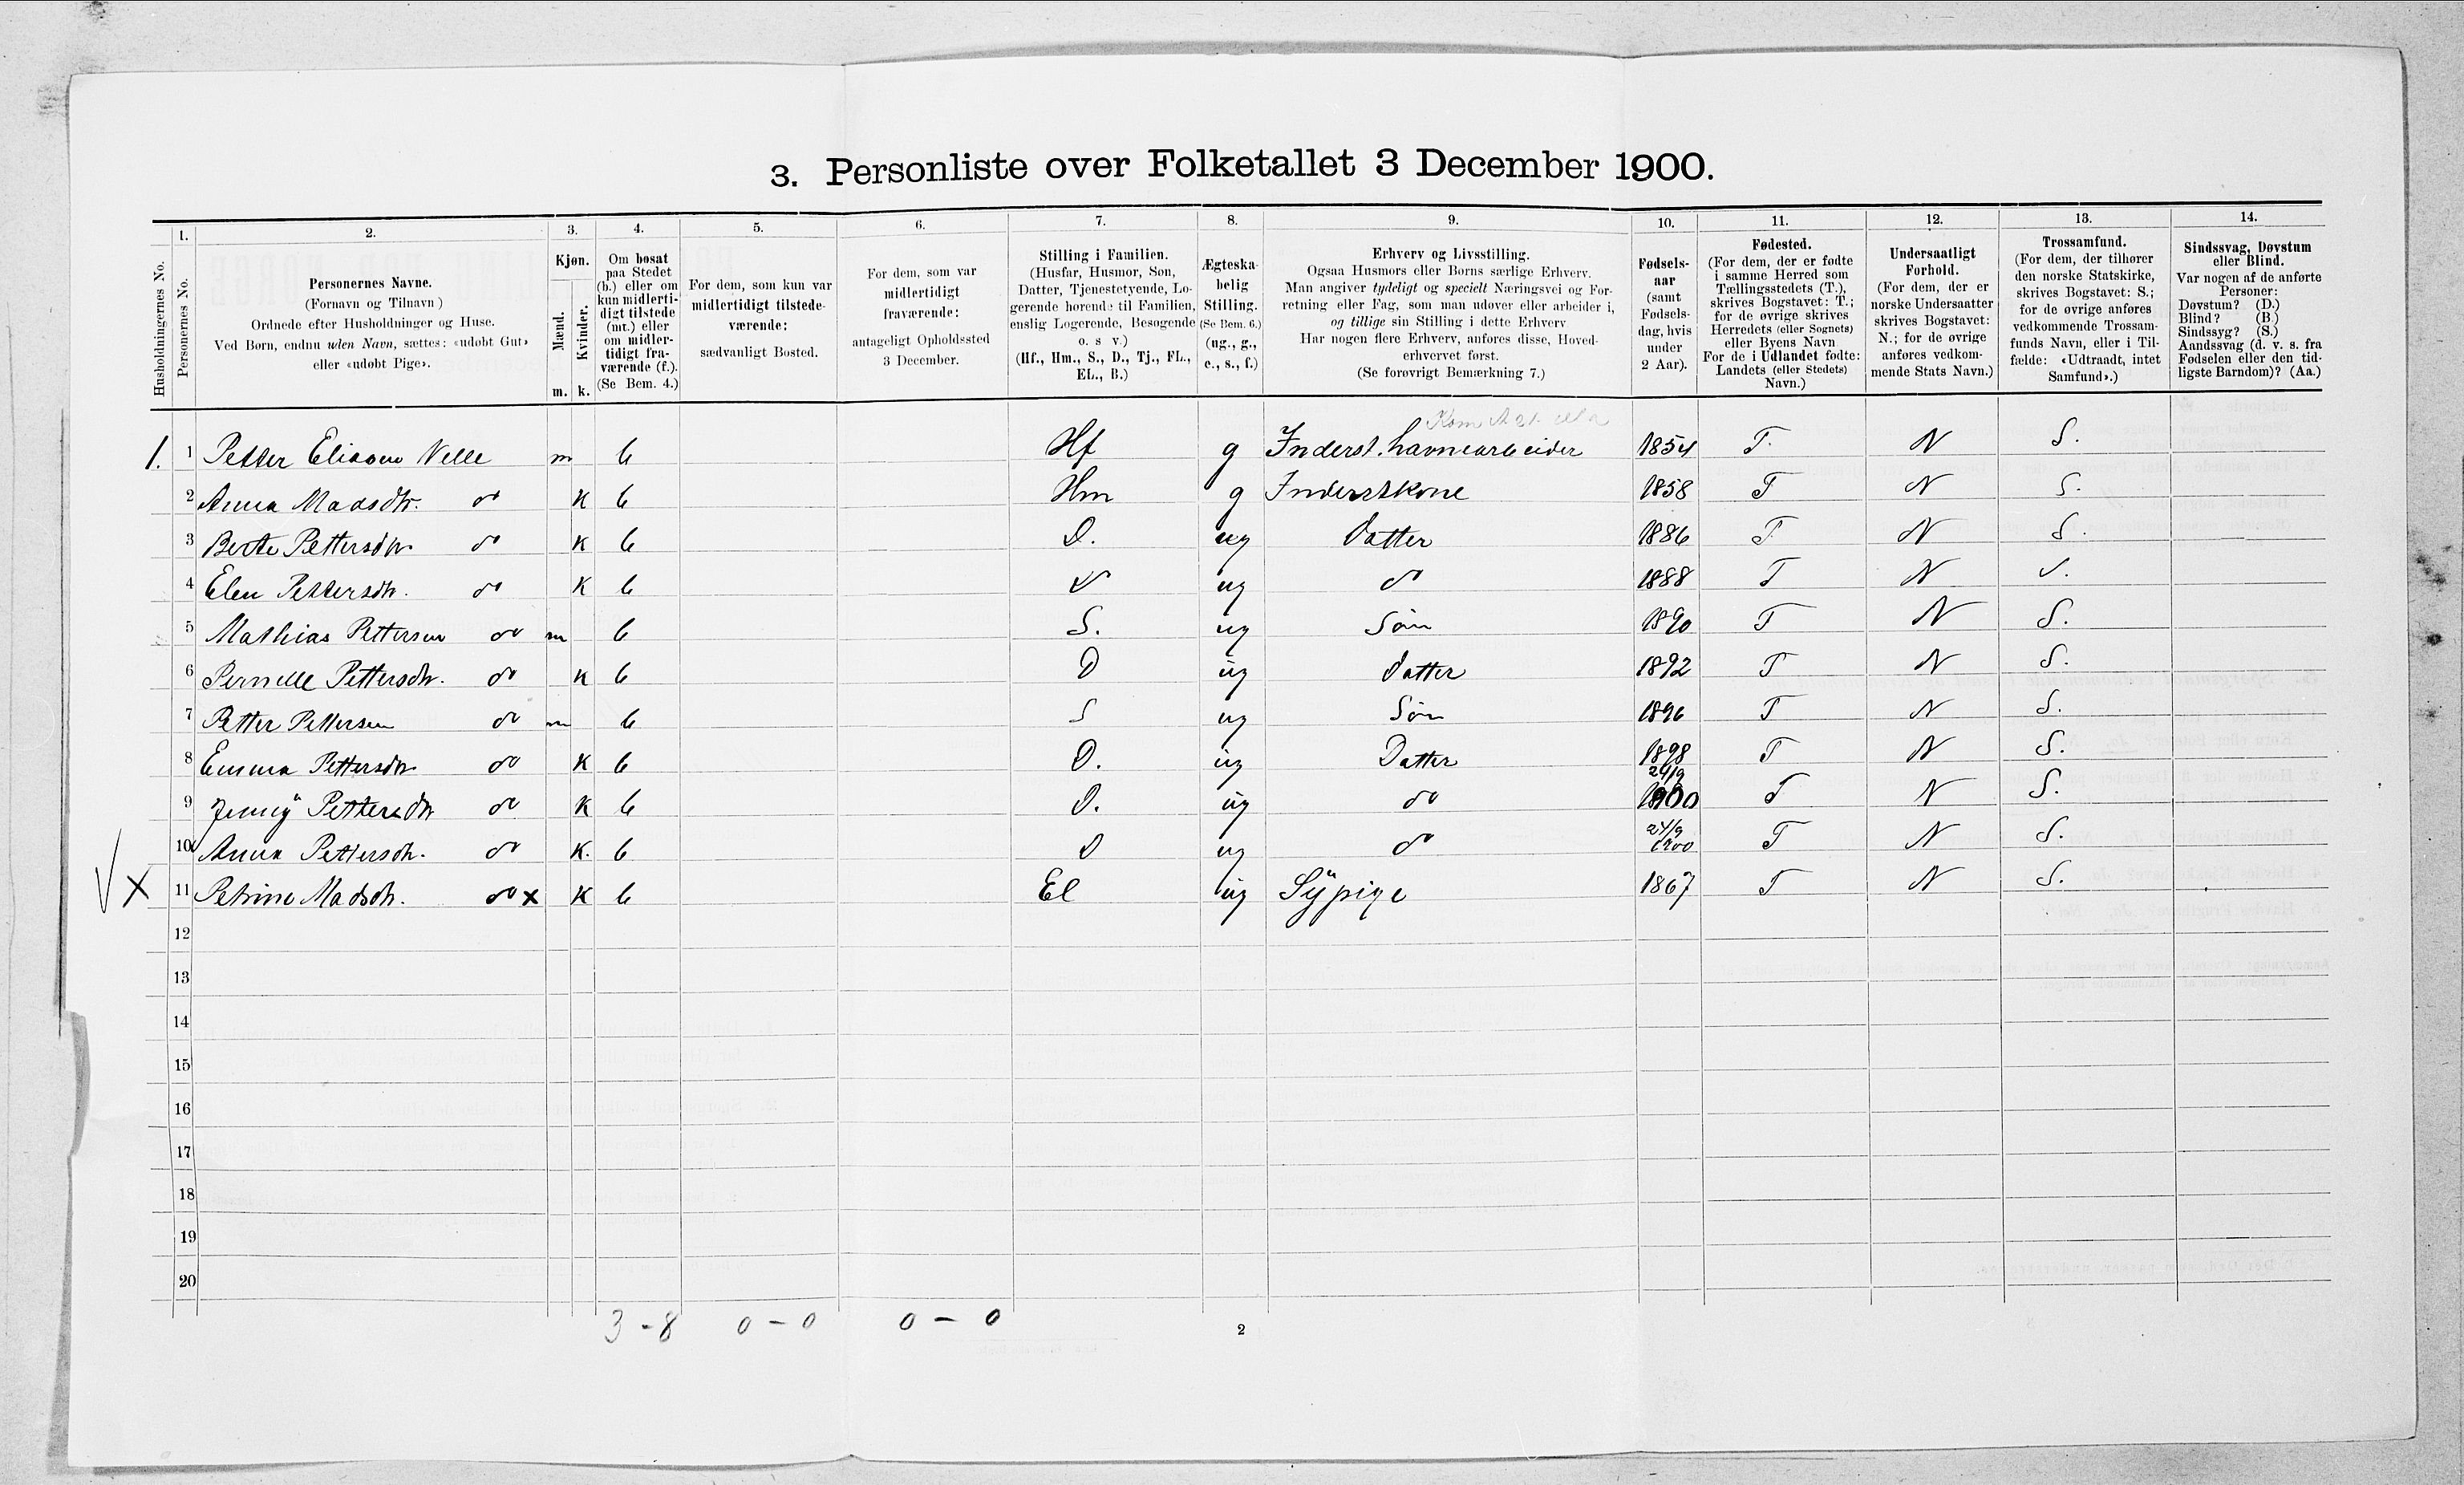 3. Personliste over Folketallet 3 December 1900.
Husholdningernes No.
1. Personernes No.
2. Personernes Navne.
(Fornavn og Tilnavn)
Ordnede efter Husholdninger og Huse.
Ved Børn, endnu uden Navn, sættes: «udøbt Gut»
eller «udøbt Pige».
3. Kjøn.
Mænd. m.
Kvinder. k.
4. Om bosat
paa Stedet
(b.) eller om
kun midlerti-
digt tilstede
(mt.) eller
om midler-
tidigt fra-
værende (f.).
(Se Bem. 4.)
5. For dem, som kun var
midlertidigt tilstede-
værende:
sædvanligt Bosted.
6. For dem, som var
midlertidigt
fraværende:
antageligt Opholdssted
3 December.
7. Stilling i Familien.
(Husfar, Husmor, Søn,
Datter, Tjenestetyende, Lo-
gerende hørende til Familien,
enslig Logerende, Besøgende
o. s v.)
(Hf., Hm., S., D., Tj., FL.,
EL., B.)
8. Ægteska-
belig
Stilling.
(Se Bem. 6.)
(ug., g.,
e., s., f.)
9. Erhverv og Livsstilling.
Ogsaa Husmors eller Børns særlige Erhverv.
Man angiver tydeligt og specielt Næringsvei og For-
retning eller Fag, som man udøver eller arbeider i,
og tillige sin Stilling i dette Erhverv
Har nogen flere Erhverv, anføres disse, Hoved-
erhvervet først.
(Se forøvrigt Bemærkning 7.)
10. Fødsels-
aar
(samt
Fødsels-
dag, hvis
under
2 Aar).
11. Fødested.
(For dem, der er fødte
i samme Herred som
Tællingsstedets (T.),
skrives Bogstavet: T.;
for de øvrige skrives
Herredets (eller Sognets)
eller Byens Navn
For de i Udlandet fødte:
Landets (eller Stedets)
Navn.)
12. Undersaatligt
Forhold.
(For dem, der er
norske Undersaatter
skrives Bogstavet:
N.; for de øvrige
anføres vedkom-
mende Stats Navn.)
13. Trossamfund.
(For dem, der tilhører
den norske Statskirke,
skrives Bogstavet: S.;
for de øvrige anføres
vedkommende Trossam-
funds Navn, eller i Til-
fælde: «Udtraadt, intet
Samfund».)
14. Sindssvag, Døvstum
eller Blind.
Var nogen af de anførte
Personer:
Døvstum? (D.)
Blind? (B.)
Sindssyg? (S.)
Aandssvag (d. v. s. fra
Fødselen eller den tid-
ligste Barndom)? (Aa.)
1. 1 Petter Eliasen Velle m b Hf g Inderst. havnearbeider 1854 T. N S.
2 Anna Madsdtr. do K b Hm g Inderstkone 1858 T N S.
3 Berte Pettersdtr. do K b D. ug datter 1886 T N S.
4 Elen Pettersdtr. do K b do ug do 1888 T N S.
5 Mathias Pettersen do m b S. ug Søn 1890 T N S.
6 Pernille Pettersdtr. do K b D ug datter 1892 T N S.
7 Petter Pettersen do m b S ug Søn 1896 T N S.
8 Emma Pettersdtr do K b D. ug Datter 1898 T N S.
9 Jenny Pettersdtr do K b D. ug do 24/9 1900 T N S.
10 Anna Pettersdtr. do K. b D ug do 24/9 1900 T N S.
X 11 Petrine Madsdtr. do x K b El ug Sypige 1867 T N S.
12
13
14
15
16
17
18
19
20
3 - 8 0 - 0 0 - 0
2